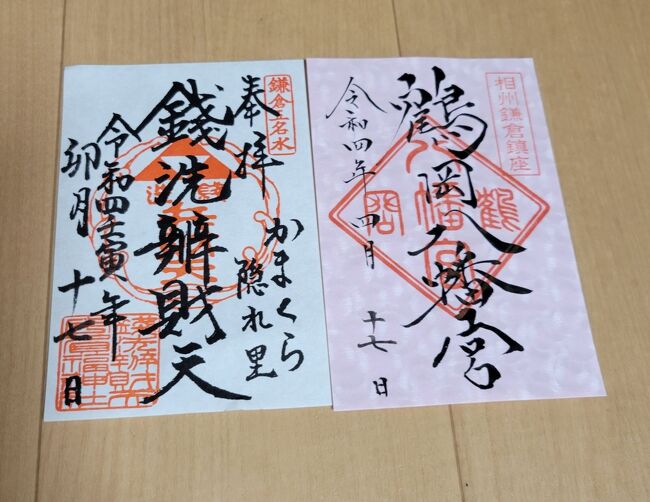 鎌倉五名水
奉拝
かまくら
隠れ里
銭洗辨財天
令和四壬寅年
卯月
十七日
相州鎌倉鎮座
鶴岡八幡宮
令和四年四月
十七日